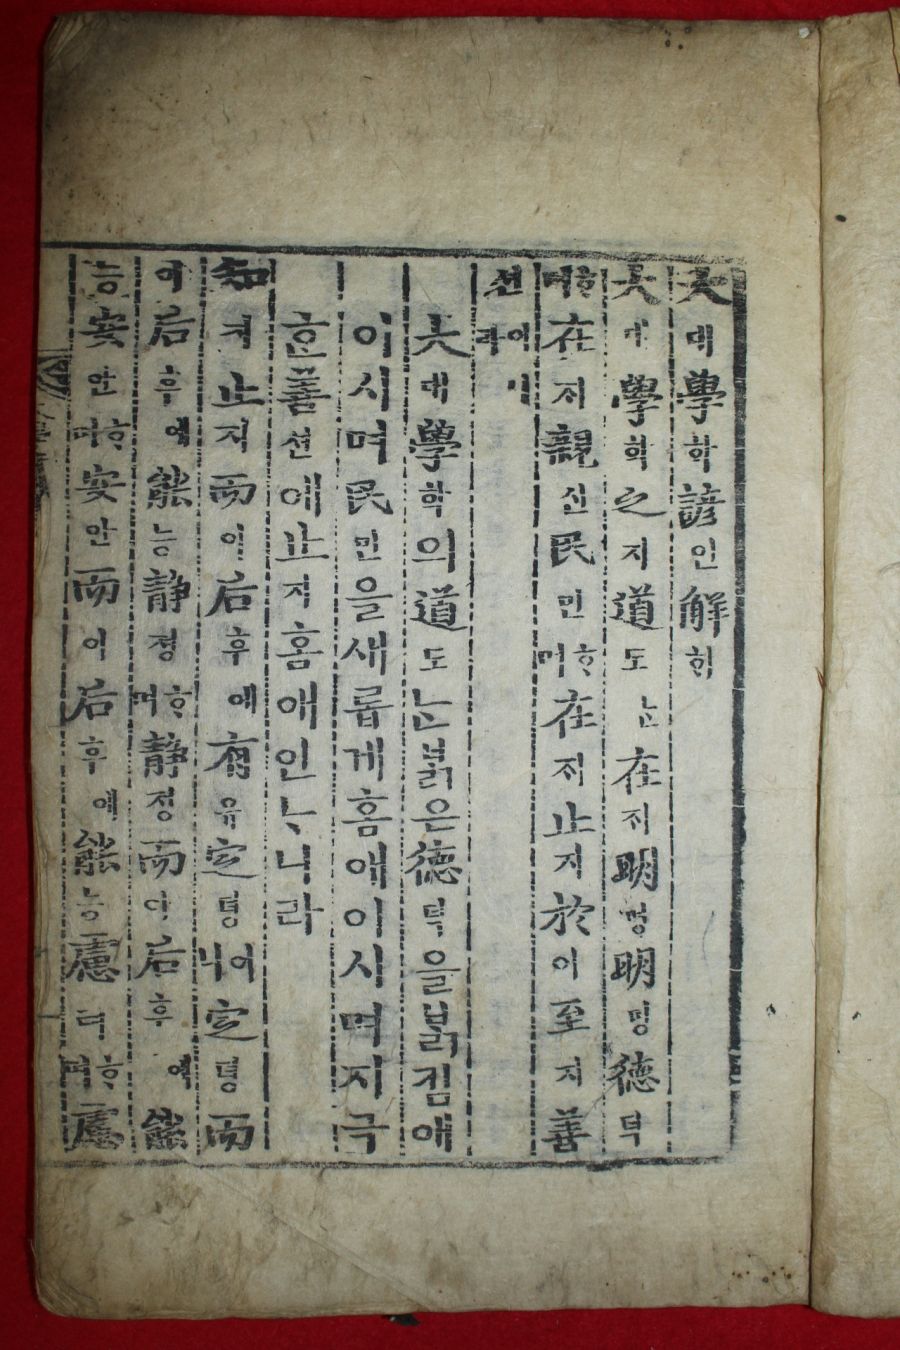 大대學학諺언解ᄒᆡ
大대學학之지道도ᄂᆞᆫ在ᄌᆡ明명明명德덕
ᄒᆞ며在ᄌᆡ親신民민ᄒᆞ며在ᄌᆡ止지於어至지善
션이니라
大대學학의道도ᄂᆞᆫᄇᆞᆰ은德덕을ᄇᆞᆰ김애
이시며民민을새롭게홈애이시며지극
ᄒᆞᆫ善션에止지홈애인ᄂᆞ니라
知지止지而이后후에有유定뎡이니定뎡而
이后후에能능靜졍ᄒᆞ며靜졍而이后후에能
능安안ᄒᆞ며安안而이后후에能능慮려ᄒᆞ며慮